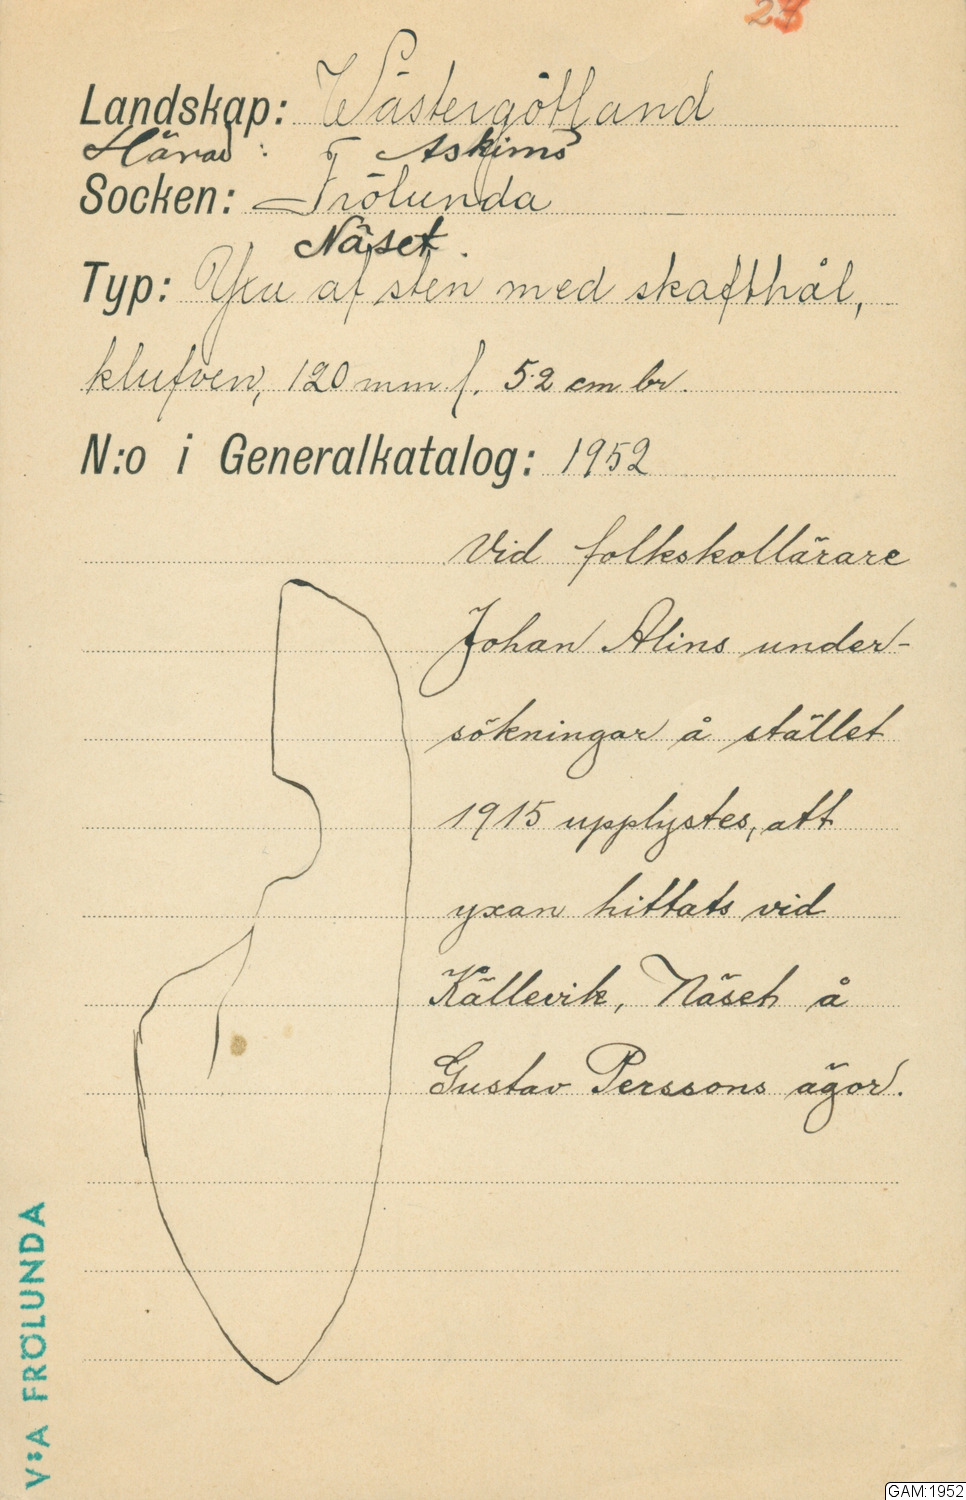 Landskap: Västergötland
Härad: Askims
Socken: Frölunda
Näset.
Typ: Yxa af sten med skafthål,
klufven, 120 mm l. 5.2 cm br.
N:o i Generalkatalog: 1952
Vid folkskollärare
Johan Alins under-
sökningar å stället
1915 upplystes, att
yxan hittats vid
Källevik, Näset å
Gustav Perssons ägor.
V:A FRÖLUNDA
GAM:1952